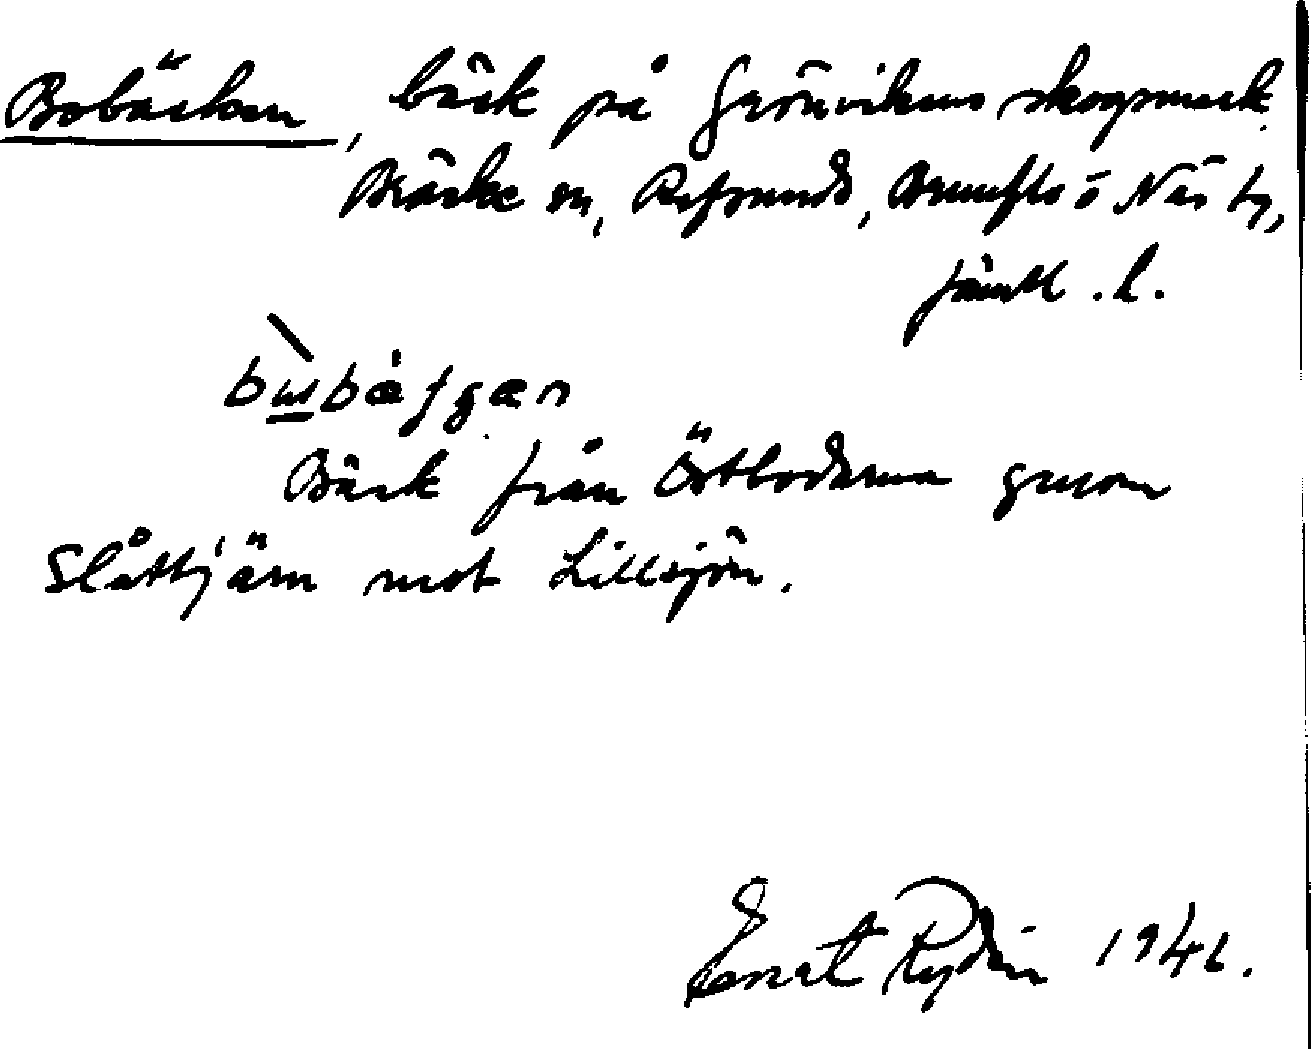 Bobäcken, bäck på Grönvikens skogsmark
Bräcke sn, Refsunds, Brunflo o Näs tg,
Jämtl. l.
Bäck från Östbodarna genom
Slåttjärn mot Lillsjön.
Ernst Rydin 1946.